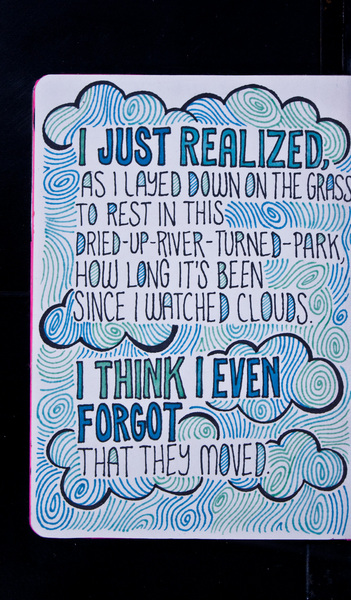 I JUST REALIZED,
AS I LAYED DOWN ON THE GRASS
TO REST IN THIS
DRIED-UP-RIVER-TURNED-PARK,
HOW LONG IT'S BEEN
SINCE I WATCHED CLOUDS.
I THINK I EVEN
FORGOT
THAT THEY MOVED.